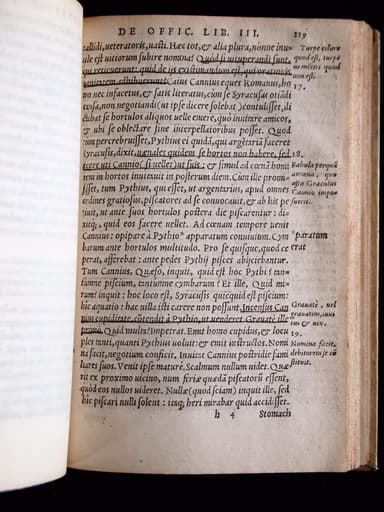 DE OFFIC. LIB. III. 119
callidi, ueteratoris, uafri. Hæc tot, & alia plura, nonne inu
tile est uitiorum subire nomina? Quod si uituperandi sunt,
qui reticuerunt: quid de ijs existimandum est, qui orationis
uanitatem adhibuerunt? Caius Cannius eques Romanus, ho
mo nec infacetus, & satis literatus, cùm se Syracusas otiādi
causa, non negotiandi (ut ipse dicere solebat) contulisset, di
ctitabat se hortulos aliquos uelle emere, quò inuitare amicos,
& ubi se oblectare sine interpellatoribus posset. Quod
cum percrebuisset, Pythius ei quidā, qui argētariā faceret
Syracusis, dixit, uænales quidem se hortos non habere, sed
licere uti Cannio, si uellet, ut suis: & simul ad cœnā homi
nem in hortos inuitauit in posterum diem. Cùm ille promi
sisset, tum Pythius, qui esset, ut argentarius, apud omnes
ordines gratiosus, piscatores ad se conuocauit, & ab his pe
tiuit, ut ante suos hortulos postera die piscarentur: di-
xitq́;, quid eos facere uellet. Ad cœnam tempore uenit
Cannius: opiparè à Pythio apparatum conuiuium. Cym
barum ante hortulos multitudo. Pro se quisque, quod ce
perat, afferebat: ante pedes Pythij pisces abijciebantur.
Tum Cannius, Quæso, inquit, quid est hoc Pythi? tan-
tumne piscium, tantumne cymbarum? Et ille, Quid mi-
rum? inquit: hoc loco est, Syracusis quicquid est piscium:
hic aquatio: hac uilla isti carere non possunt. Incensus Can
nius cupiditate, cōtendit à Pythio, ut uenderet. Grauatè ille
primò. Quid multa? Impetrat. Emit homo cupidus, & locu
ples tanti, quanti Pythius uoluit: & emit instructos. Nomi
na facit, negotium conficit. Inuitat Cannius postridie fami
liares suos. Venit ipse maturè. Scalmum nullum uidet. Quæ
rit ex proximo uicino, num feriæ quædā piscatorū essent,
quòd eos nullos uideret. Nullæ (quod sciam) inquit ille, sed
hic piscari nulli solent: itaq; heri mirabar quid accidisset.
h 4 Stomach
Turpe celare
quod est, turpi
us mētiri quod
non est.
17.
18.
ꝰparatum
erat
Grauatè, uel
grauatim,
19.
Nomina facit,
debitorem se cō
stituit.